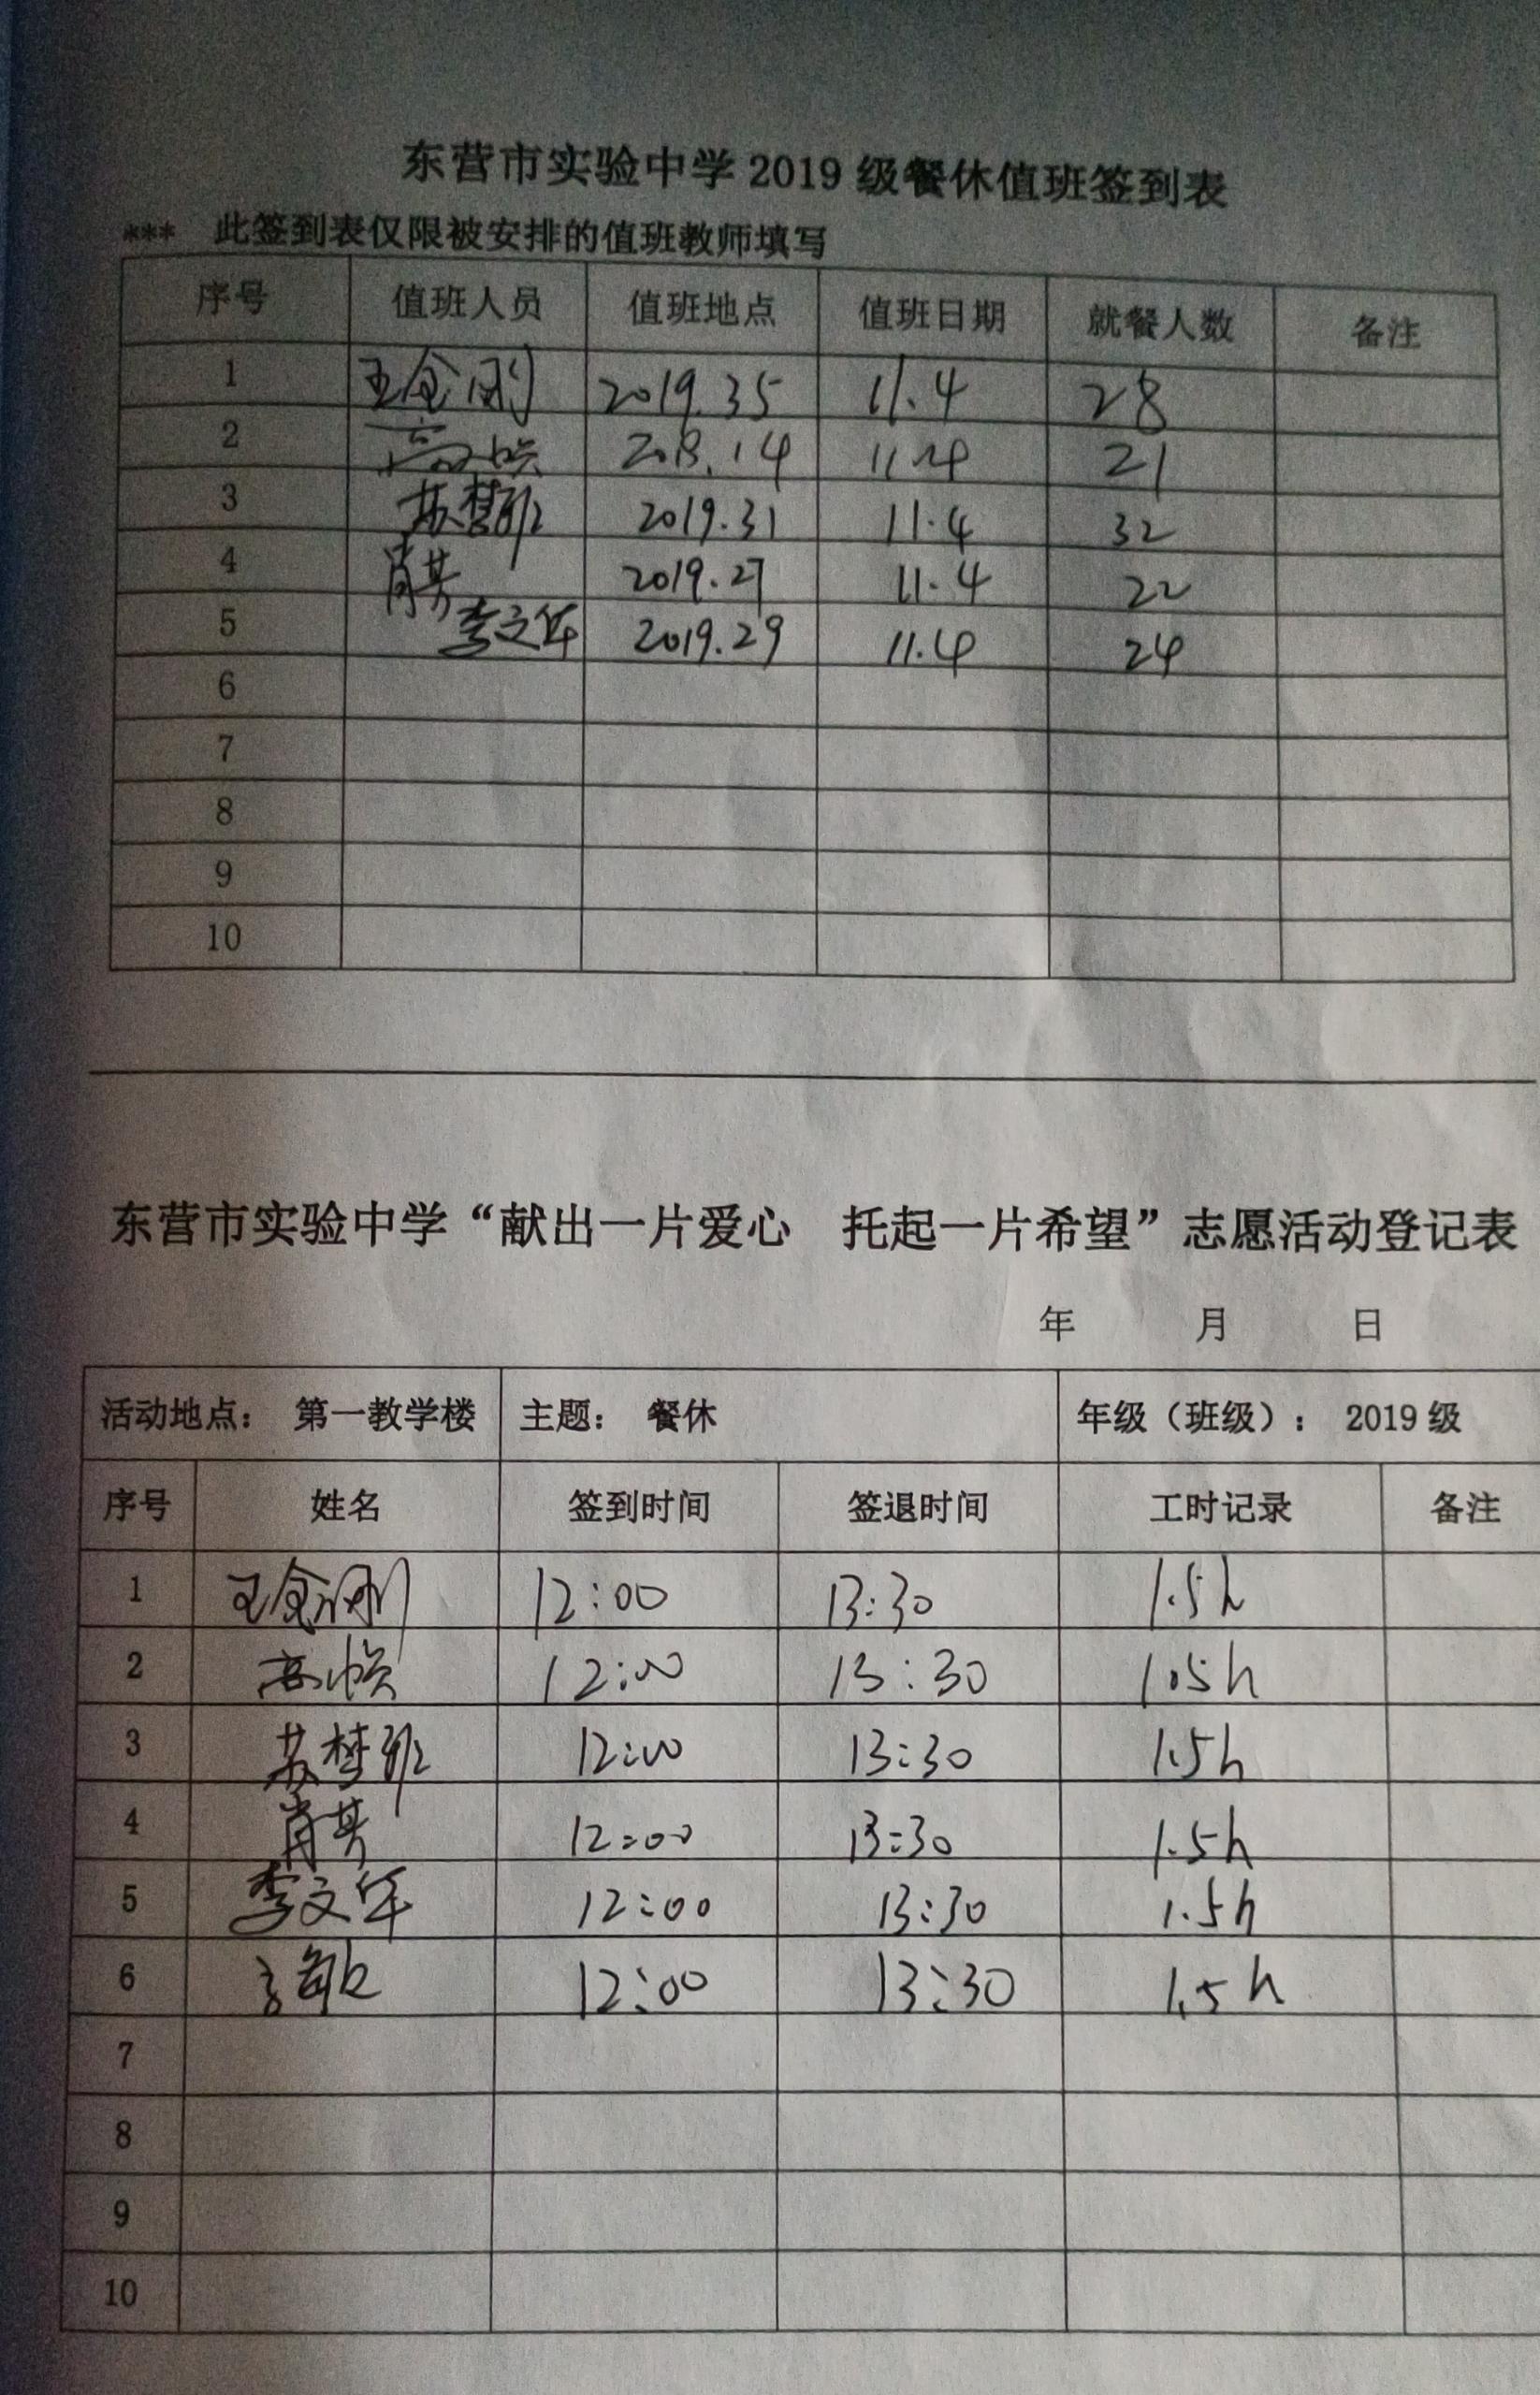 东营市实验中学 2019 级餐休值班签到表
*** 此签到表仅限被安排的值班教师填写
序号 值班人员 值班地点 值班日期 就餐人数 备注
1 王金刚 2019.35 11.4 28
2 高 14 11.4 21
3 苏梦 2019.31 11.4 32
4 肖芳 2019.27 11.4 22
5 李文华 2019.29 11.4 24
6
7
8
9
10
东营市实验中学“献出一片爱心 托起一片希望”志愿活动登记表
年 月 日
活动地点： 第一教学楼 主题： 餐休 年级（班级）： 2019 级
序号 姓名 签到时间 签退时间 工时记录 备注
1 王金刚 12:00 13:30 1.5h
2 高 12:00 13:30 1.5h
3 苏梦 12:00 13:30 1.5h
4 肖芳 12:00 13:30 1.5h
5 李文华 12:00 13:30 1.5h
6 12:00 13:30 1.5h
7
8
9
10